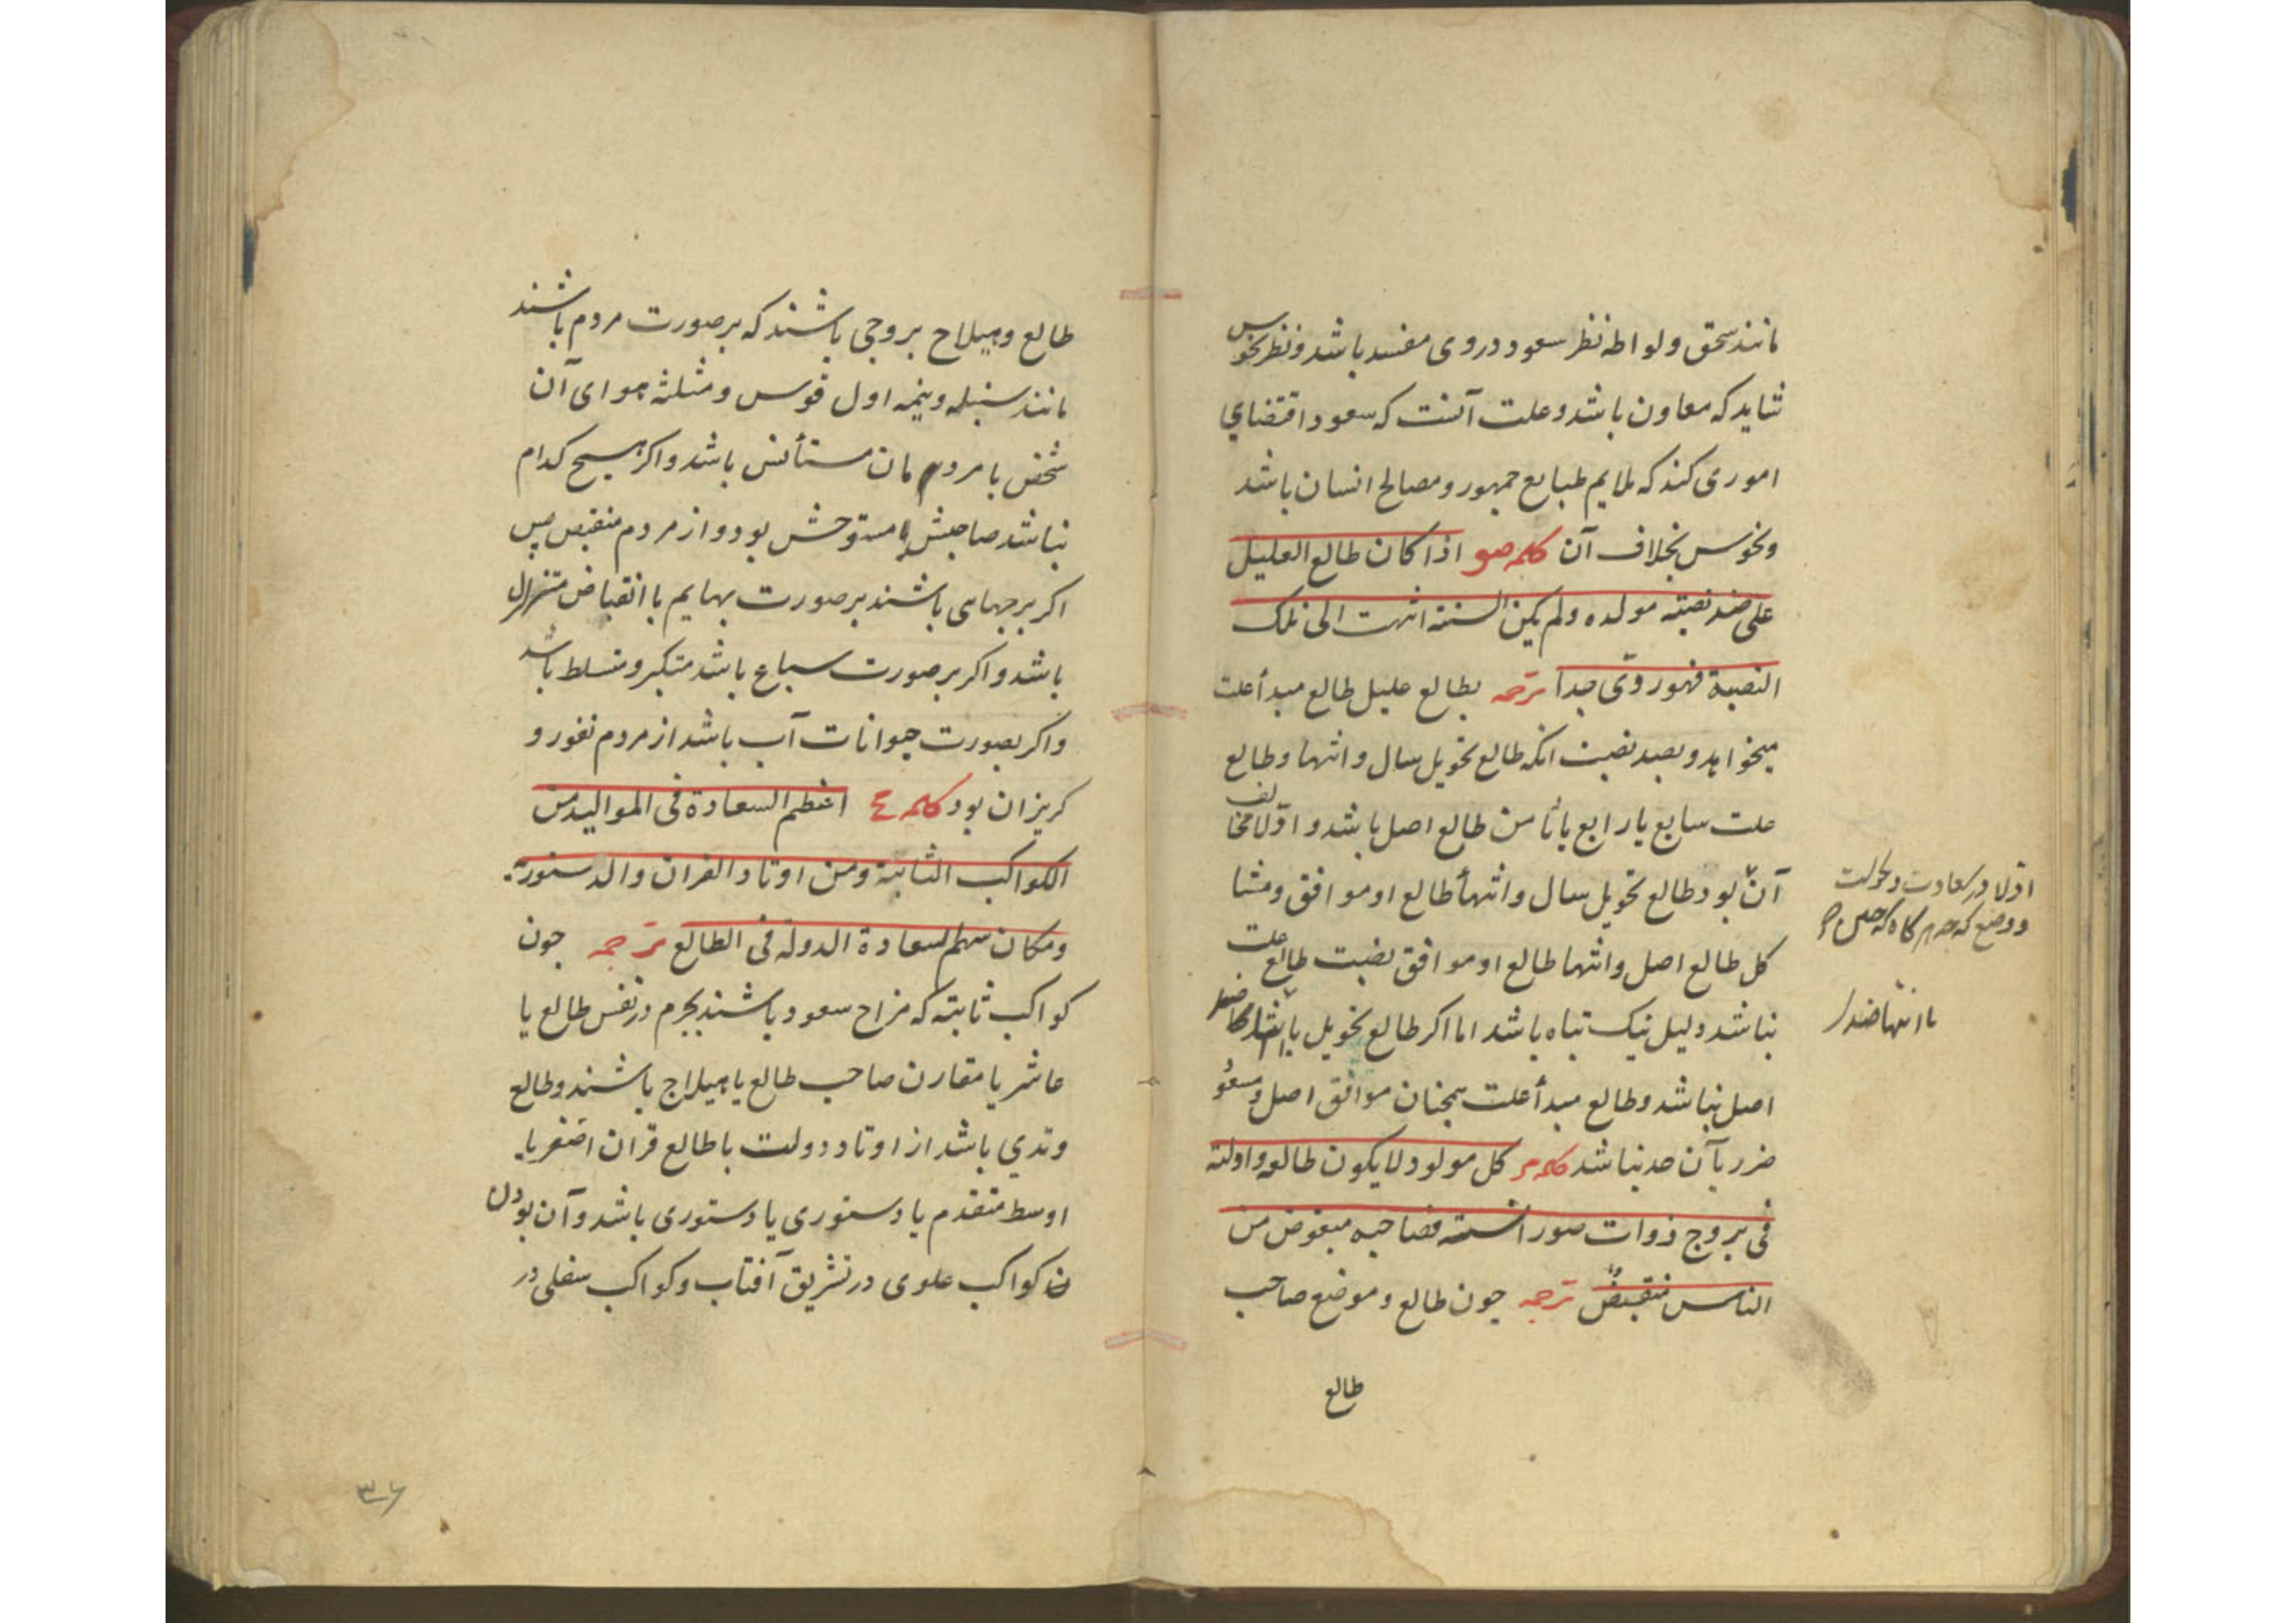 مانند سحق ولواطه نظر سعود در وی مفسد باشد ونظر نحوس
شاید که معاون باشد وعلت آنست که سعود اقتضاي
اموری کند که ملایم طبایع جمهور ومصالح انسان باشد
ونحوس بخلاف آن کلمه صو اذا کان طالع العلیل
علی ضد نصبته مولده ولم یکن السنة انتهت الی تلک
النصبة فهور ردیّ جدا ترجمه بطالع علیل طالع مبدأ علت
میخواهد وبضد نصبت انکه طالع تحویل سال وانتها وطالع
علت سابع یا رابع یا ثامن طالع اصل باشد واوّلا مخالف
آن بود وطالع تحویل سال وانتهأ طالع او موافق ومشا
کل طالع اصل وانتها طالع او موافق نصبت طالع علت
نباشد دلیل نیک تباه باشد اما اکر طالع تحویل یا انتها
اصل نباشد وطالع مبدأ علت همچنان موافق اصل ومسعود
ضرر بآن حد نباشد کلمه کل مولود لا یکون طالعه وادلته
فی بروج ذوات صور انسیته فصاحبه مبغوض من
الناس منقبضٌ ترجمه جون طالع وموضع صاحب
طالع
اوّلا در سعادت و نحوست
با انتها ضد
طالع وهیلاج بروجی باشند که بر صورت مردم باشند
مانند سنبله ونیمه اول قوس ومثلثه هوای آن
شخص با مردم مان مستأنس باشد واکر هیچ کدام
نباشد صاحبش مستوحش بود واز مردم منقبض پس
اکر برجهای باشند بر صورت بهایم با انقباض متنزل
باشد واکر بر صورت سباع باشد متکبر ومتسلط باشد
واکر بصورت حیوانات آب باشد از مردم نفور و
کریزان بود کلمه اعظم السعادة فی الموالید من
الکواکب الثابتة ومن اوتاد القران والدستوریة
ومکان سهم السعادة الدولة فی الطالع ترجمه جون
کواکب ثابته که مزاج سعود باشند بجرم در نفس طالع یا
عاشر یا مقارن صاحب طالع یا هیلاج باشند وطالع
وتدي باشد از اوتاد دولت یا طالع قران اصغر یا
اوسط متقدم یا دستوری یا دستوری باشد وآن بودن
ن کواکب علوی در تشریق آفتاب وکواکب سفلی در
۳۶